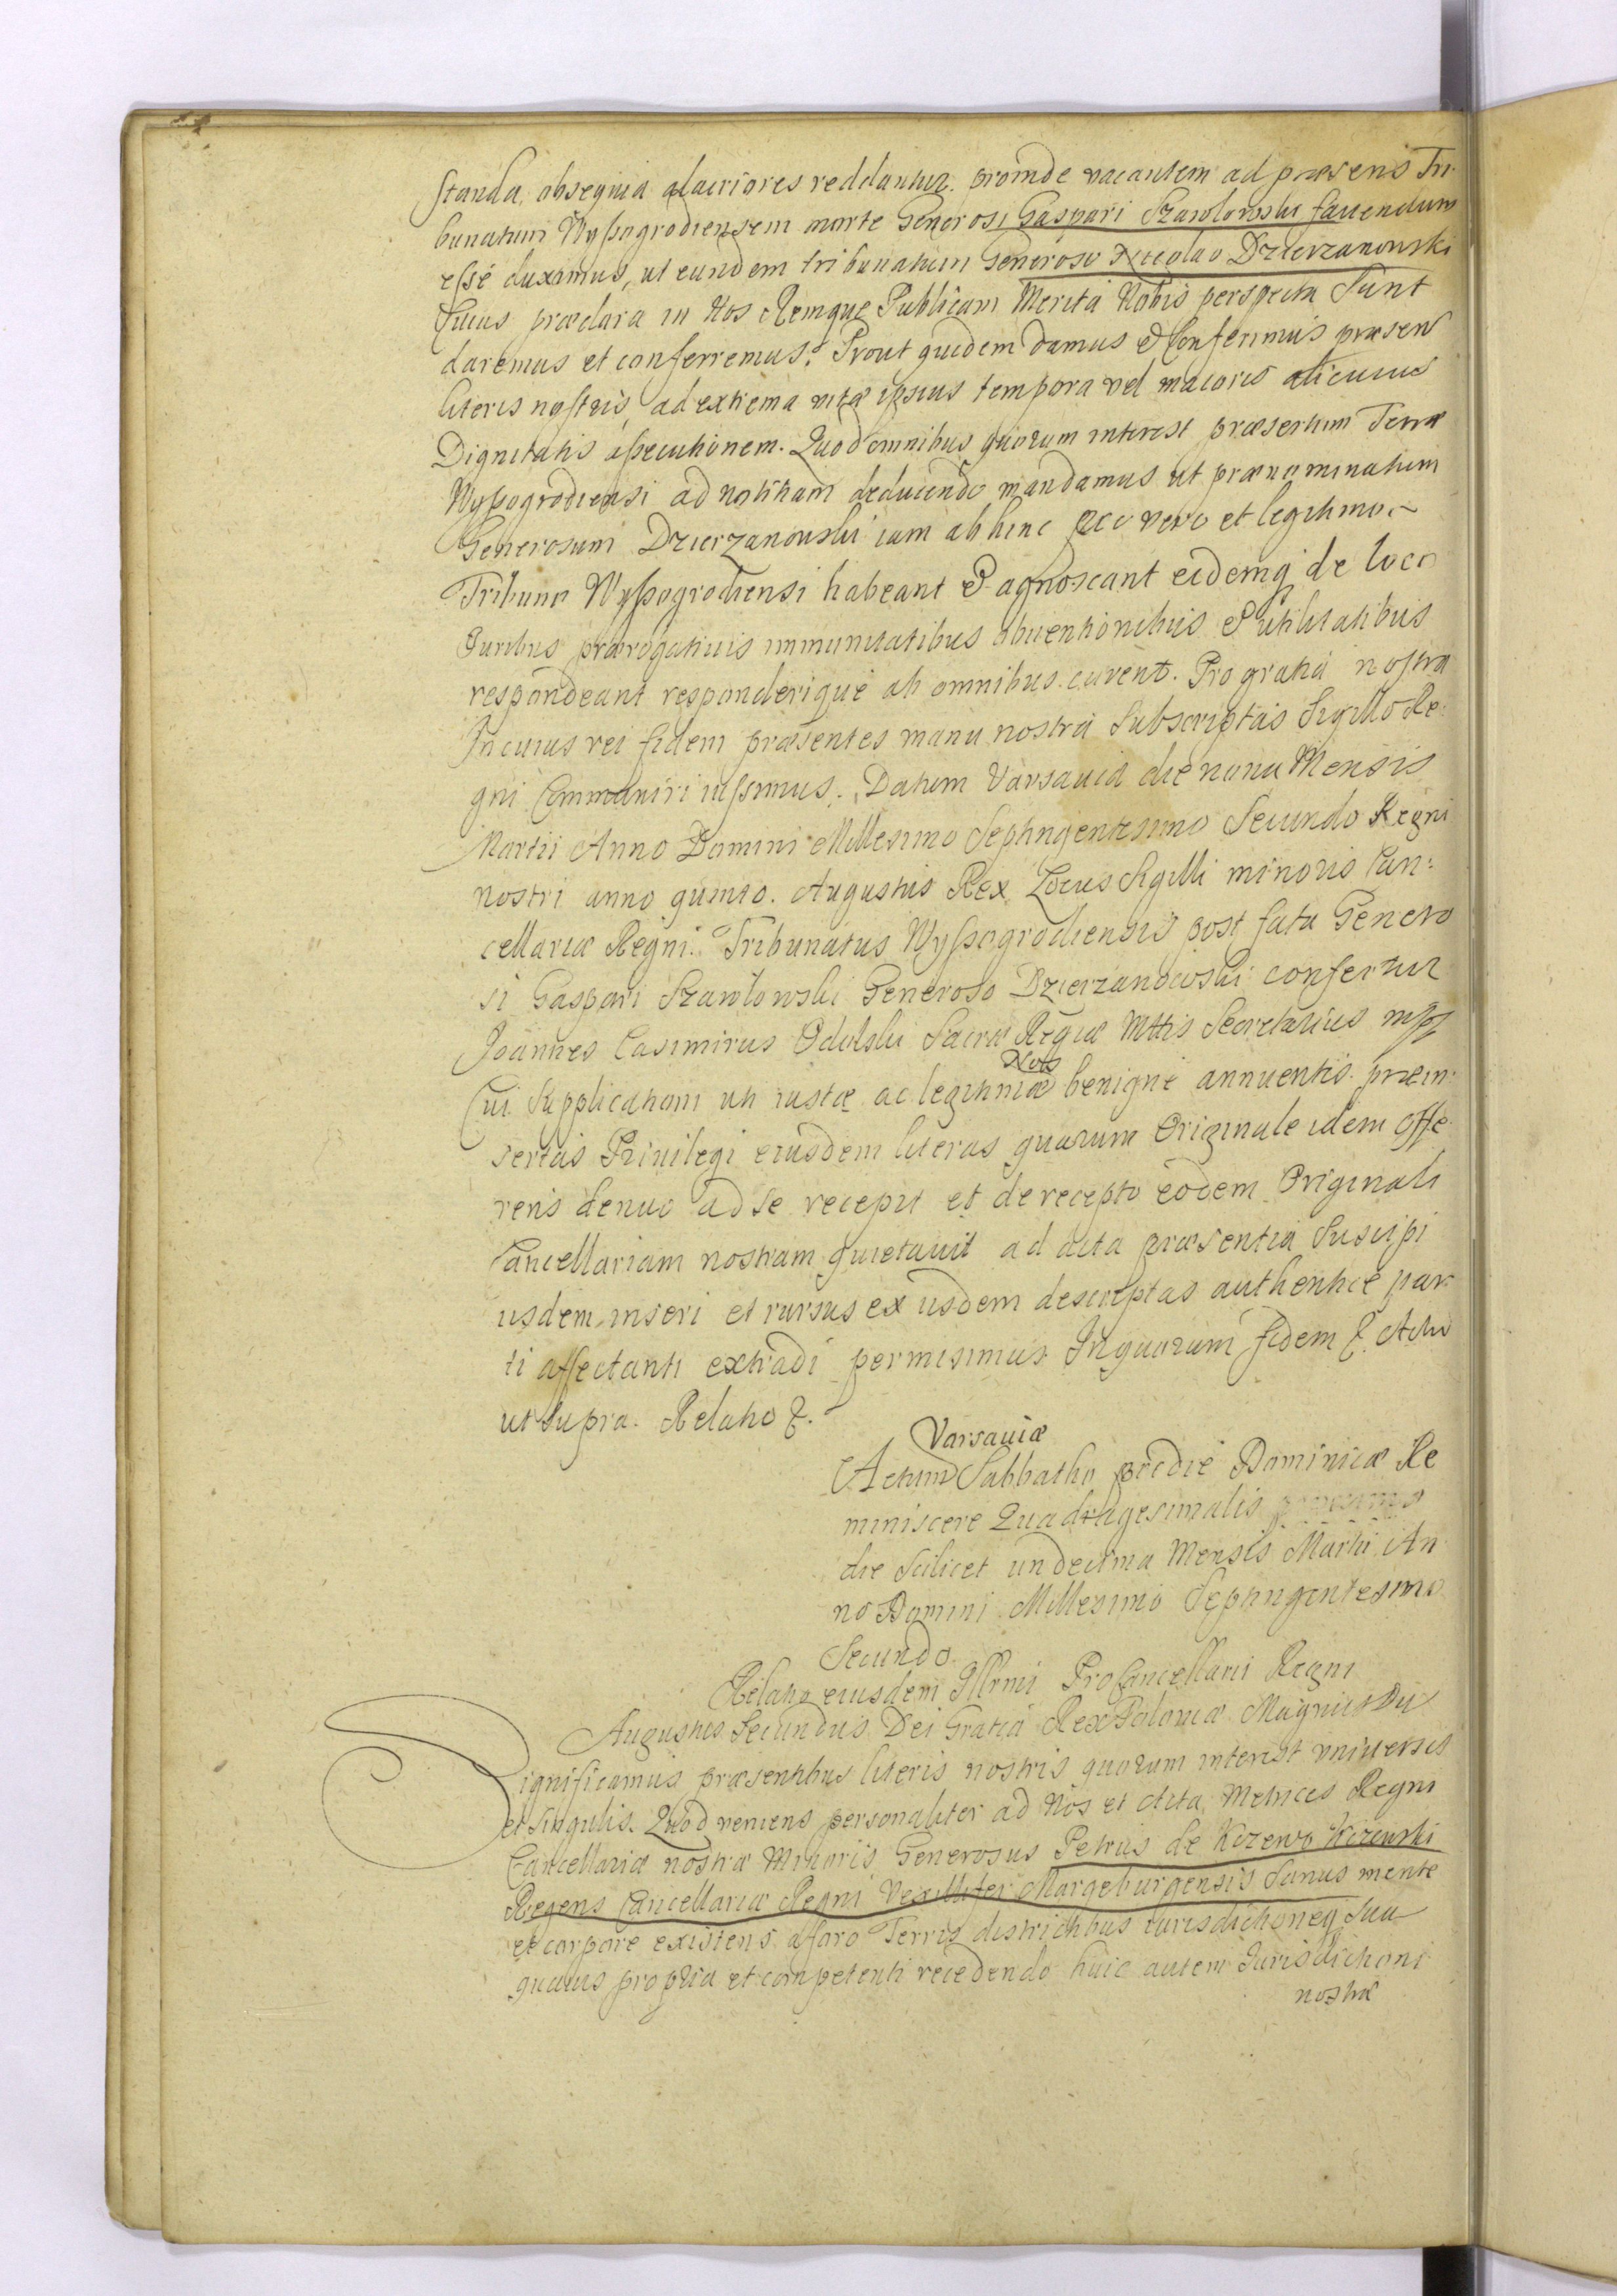 standa, obsequia alacriores reddantur. proinde vacantem ad praesens Tri-
bunatum Wyszogrodiensem morte Generosi Gaspari Szawłowski favendum
esse duximus, ut eundem tribunatum Generoso Nicolao Dzierzanowski
Cuius praeclara in Nos Remque Publicam Merita Nobis perspecta sunt
daremus et conferremus. Prout quidem damus & Conferimus praesen
literis nostris, ad extrema vitae ipsius tempora vel maioris alicuius
Dignitatis assecutionem. Quod omnibus quorum interest praesertim Terrae
Wyszogrodiensi ad notitiam deducendo mandamus ut praenominatum
Generosum Dzierzanowski iam ab hinc pro vero et legitimo
Tribuno Wyszogrodiensi habeant & agnoscant eidemq de loco
Juribus praerogativis immunitatibus obuentionibus & utilitatibus
respondeant responderique ab omnibus curent. Pro gratia nostra
In cuius rei fidem praesentes manu nostra Subscriptas Sigillo Re-
gni Communiri iussimus. Datum Varsavia die nona Mensis
Martii Anno Domini Millesimo Septingentesimo Secundo Regni
nostri anno quinto. Augustus Rex Locus Sigilli minoris Can:
cellariae Regni. Tribunatus Wyszogrodiensis post fata Genero
si Gaspari Szawłowski Generoso Dzierzanowski confertur
Joannes Casimirus Odolski Sacrae Regiae Mttis Secretarius mpp
Nos
Cui Supplicationi uti iustae ac legitimae benigne annuentis. praein-
sertas Privilegi eiusdem literas quarum Originale idem offe-
rens denuo ad se recepit et de recepto eodem Originali
Cancellariam nostram quietavit ad acta praesentia Suscipi
iisdem inseri et rursus ex iisdem descriptas authentice par-
ti affectanti extradi permisimus In quorum fidem &. Actu
ut supra. Relatio &.
Varsaviae
Actum Sabbatho pridie Dominicae Re
miniscere Quadragesimalis
die Scilicet undecima Mensis Martii An
no Domini Millesimo Septingentesimo
Secundo.
Relatio eiusdem Illrmi ProCancellarii Regni
Augustus Secundus Dei Gratia Rex Poloniae Magnus Dux
Significamus praesentibus literis nostris quorum interest universis
et singulis. Quod veniens personaliter ad Nos et Acta Metrices Regni
Cancellariae nostrae Minoris Generosus Petrus de Kczewo Kczewski
Regens Cancellariae Regni Vexillifer Margeburgensis Sanus mente
et corpore existens a foro Terris districtibus iurisdictioneq Sua
quavis propria et competenti recedendo huic autem Jurisdictioni
nostrae